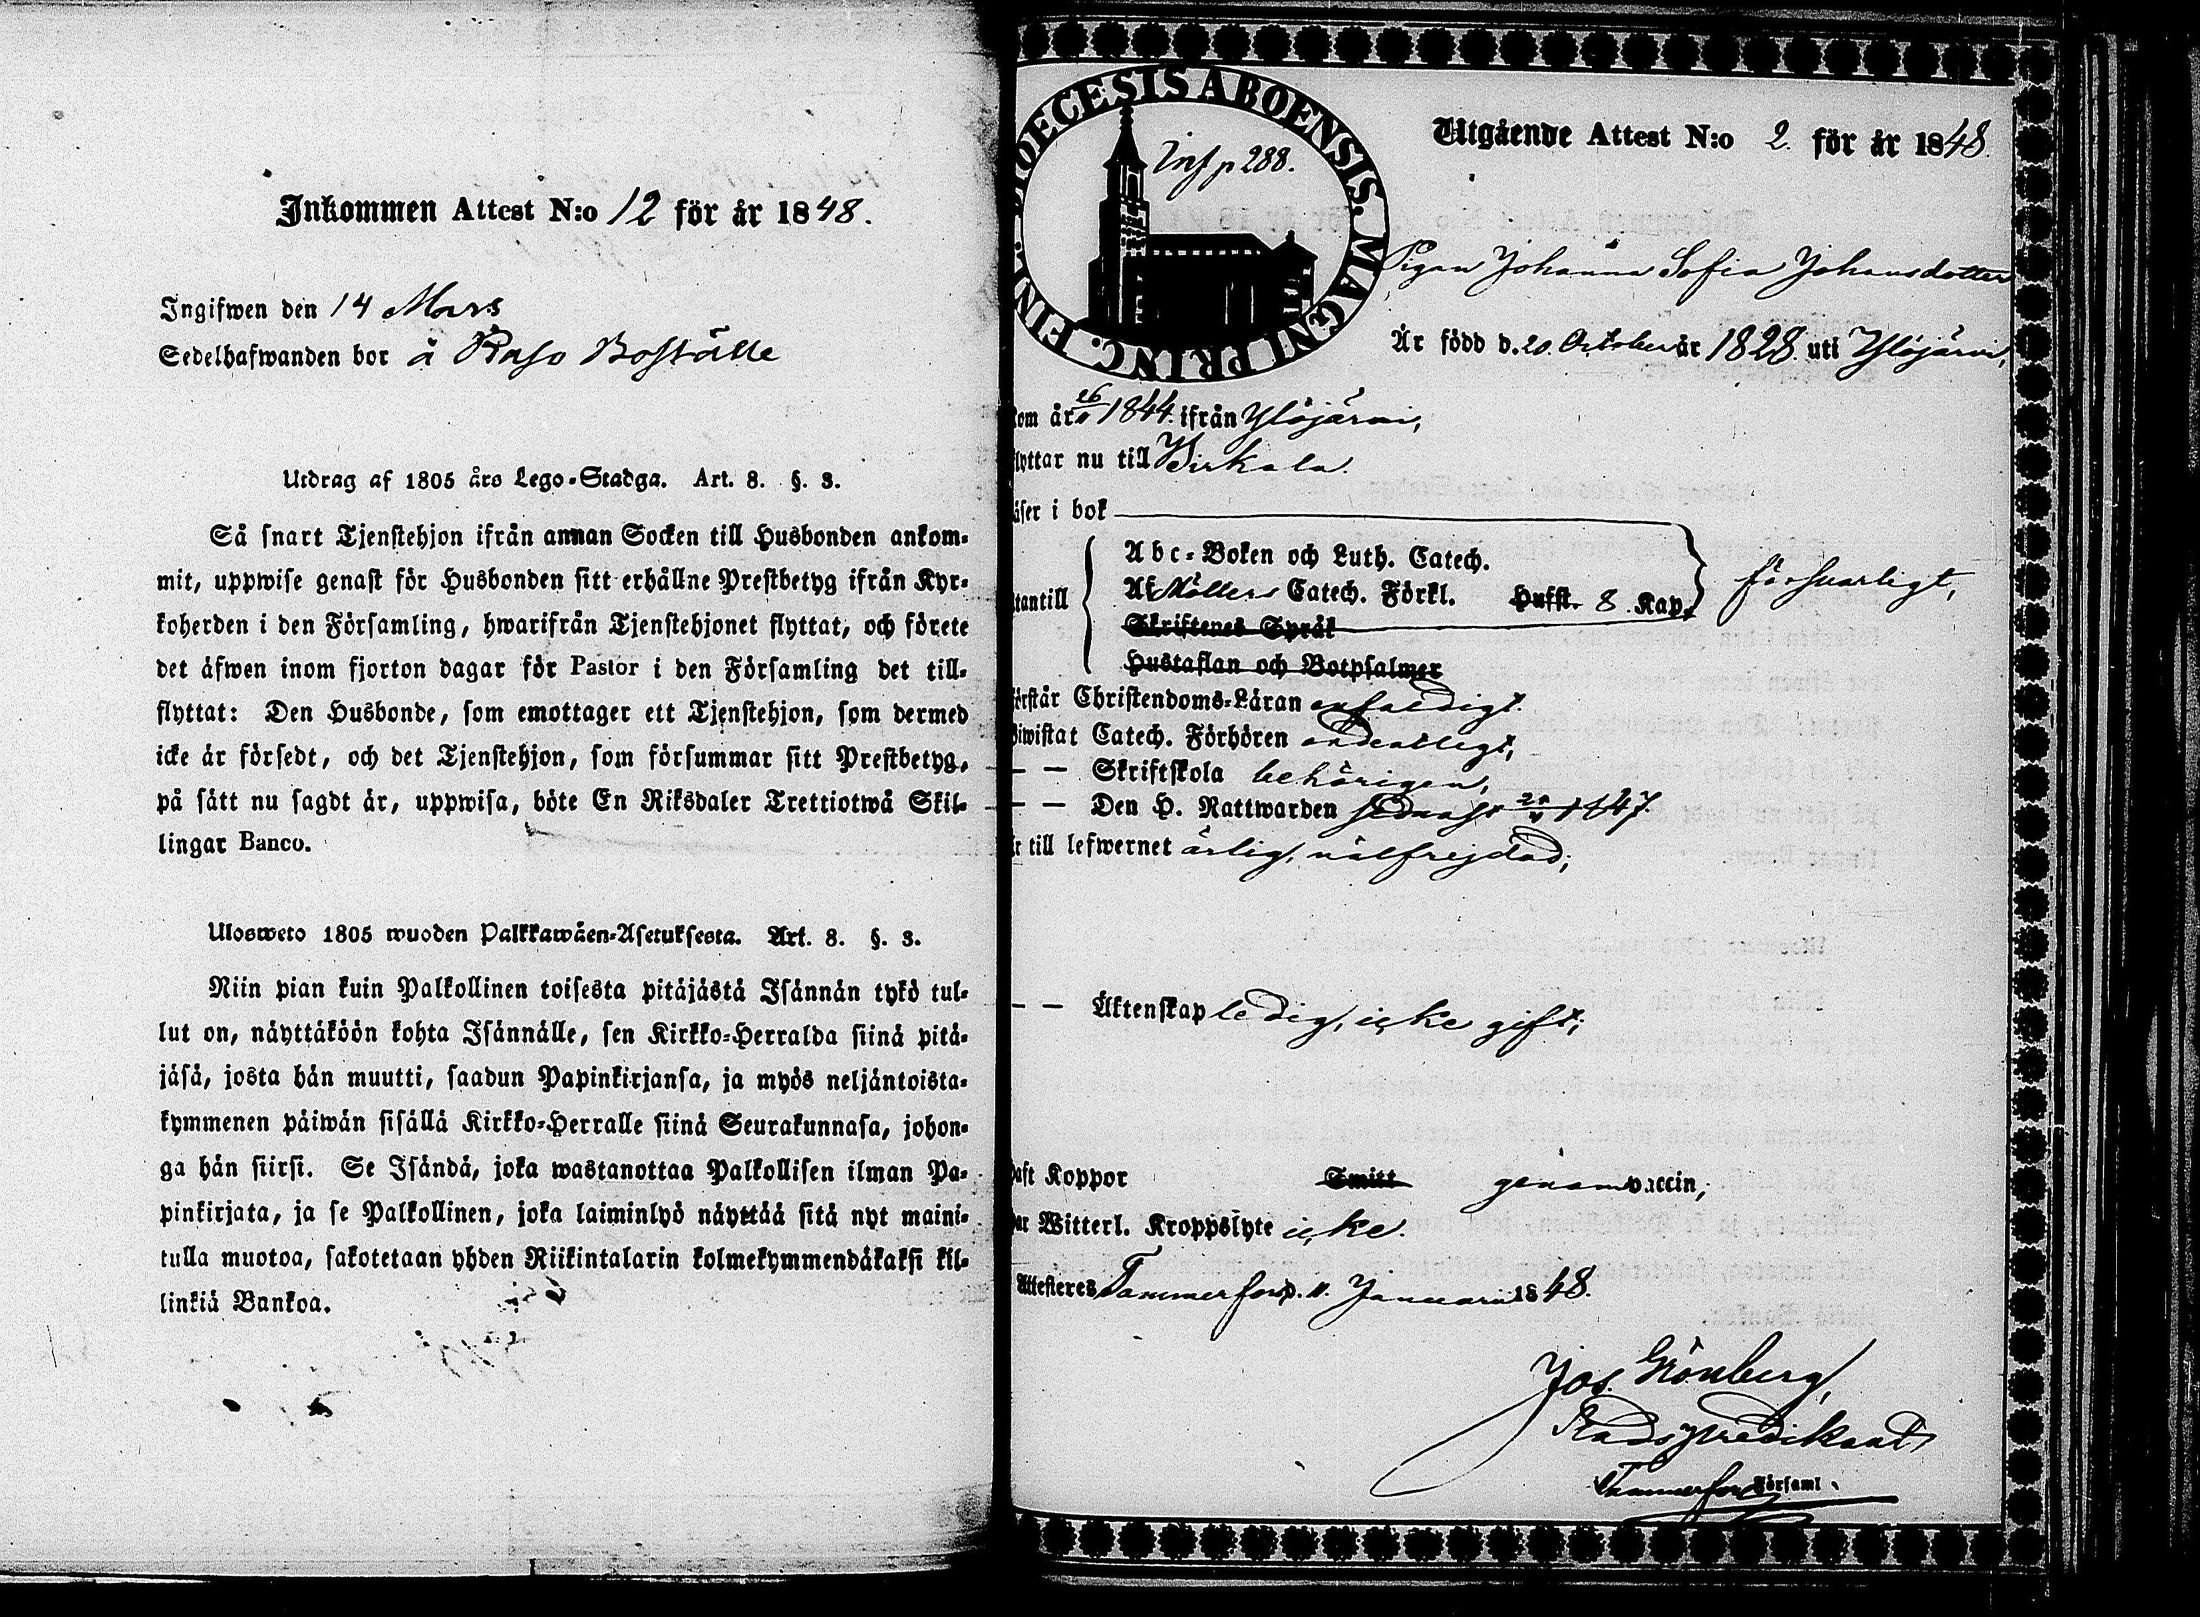 Inkommen Attest N:o 12 för år 1848.
Ingifwen den 14 Mars
Sedelhafwanden bor å Boställe
Utdrag af 1805 års Lego-Stadga. Art. 8. §. 3.
Så snart Tjenstehjon ifrån annan Socken till Husbonden ankom-
mit, uppwise genast för Husbonden sitt erhållne Prestbetyg ifrån Kyr-
koherden i den Församling, hwarifrån Tjenstehjonet flyttat, och förete
det äfwen inom fjorton dagar för Pastor i den Församling det till-
flyttat: Den Husbonde, som emottager ett Tjenstehjon, som dermed
icke är försedt, och det Tjenstehjon, som försummar sitt Prestbetyg,
på sätt nu sagdt är, uppwisa, böte En Riksdaler Trettiotwå Skil-
lingar Banco.
Ulosweto 1805 wuoden Palkkawäen-Asetuksesta. Art. 8. §. 3.
Niin pian kuin Palkollinen toisesta pitäjästä Isännän tykö tul-
lut on, näyttäköön kohta Isännälle, sen Kirkko-Herralda siinä pitä-
jäsä, josta hän muutti, saadun Papinkirjansa, ja myös neljäntoista-
kymmenen päiwän sisällä Kirkko-Herralle siinä Seurakunnasa, johon-
ga hän siirsi. Se Isändä, joka wastanottaa Palkollisen ilman Pa-
pinkirjata, ja se Palkollinen, joka laiminlyö näyttää sitä nyt maini-
tulla muotoa, sakotetaan yhden Riikintalarin kolmekymmendäkaksi kil-
linkiä Bankoa.
DIOECESIS ABOENSIS. MAGNI PRINC. FINL.
Inf p 288.
Utgående Attest N:o 2. för år 1848.
Pigan Johanna Sofia Johansdotter
Är född d. 20. October år 1828. uti Ylöjärvi,
kom år 1844. ifrån Ylöjärvi,
flyttar nu till Birkala.
läser i bok
Abc-Boken och Luth. Catech.
Af Möllers Catech. Förkl. Hufst. 8 Kap. försvarligt,
utantill
Skriftenes Språk
Hustaflan och Botpsalmer
förstår Christendoms-Läran enfaldigt.
biwistat Catech. Förhören ordentligt,
— — Skriftskola behörigen,
— — Den H. Nattwarden sednast 1847.
Är till lefwernet ärlig, välfrejdad,
— — Äktenskap ledig, icke gift,
haft Koppor Smitt genom vaccin,
har Witterl. Kroppslyte icke.
Attesteres Tammerfors d. 11. Januari 1848.
Jos. Grönberg,
Stadspredikant
Tammerfors Församl.